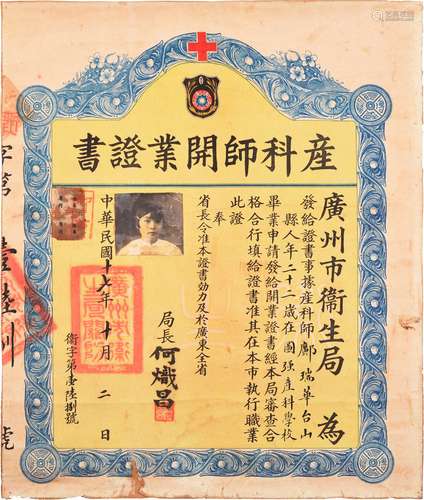 産科師開業證書
廣州市衞生局 為
發給證書事據產科師鄺瑞華台山
縣人年二十二歲在圖强產科學校
畢業申請發給開業證書經本局審查合
格合行填給證書准其在本市執行職業
此證
奉
省長令准本證書効力及於廣東全省
局長 何熾昌
中華民國十七年十月二日
衞字第壹陸捌號
字第壹陸捌號